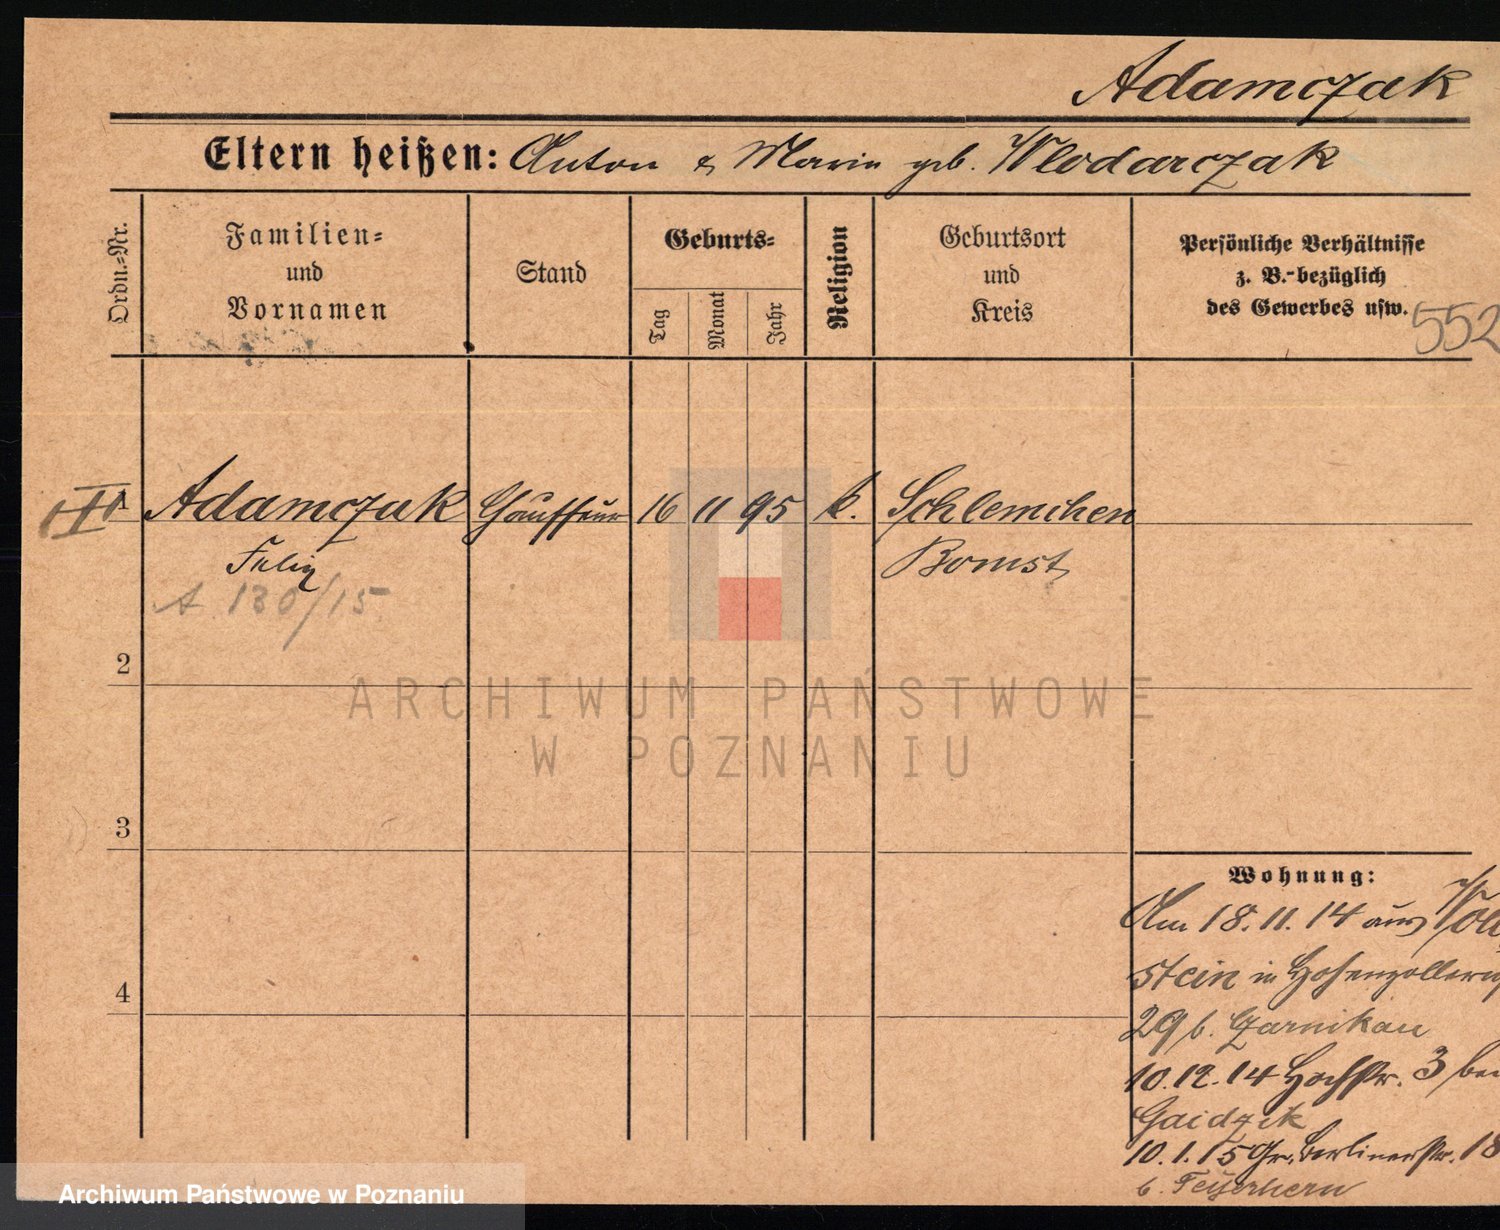 Adamczak
Eltern heißen: Anton & Marie geb. Wlodarczak
Ordn.-Nr.
Familien-
und
Vornamen
Stand
Geburts-
Tag
Monat
Jahr
Religion
Geburtsort
und
Kreis
Persönliche Verhältnisse
z. B. bezüglich
des Gewerbes usw.
552
Adamczak Chauffeur 16 11 95 k.
Felix Bomst
A. 130/15
2
3
4
Wohnung:
Am 18.11.14 aus Woll
stein in Hohenzollern
29 b. Czarnikau
10.12.14 Hochstr. 3 bei
Gaidzik
10.1.15 Gr. Berlinerstr. 18
b.
ARCHIWUM PAŃSTWOWE
W POZNANIU
Archiwum Państwowe w Poznaniu